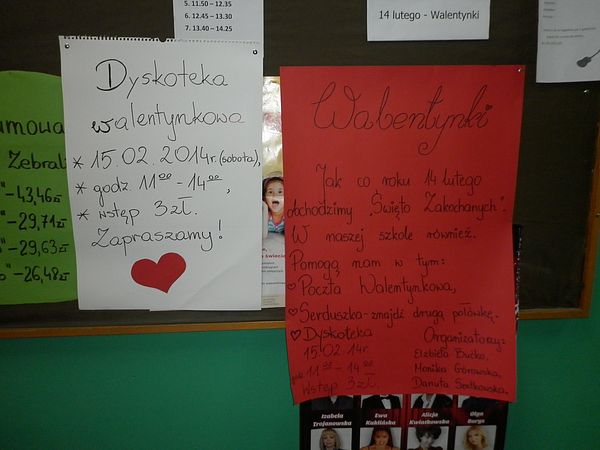 5. 11.50 – 12.35
6. 12.45 – 13.30
7. 13.40 – 14.25
14 lutego - Walentynki
Zebral
-43,46zł
-29,71zł
-29,63zł
-26,48zł
Dyskoteka
walentynkowa
* 15.02.2014r. (sobota),
* godz. 11⁰⁰ - 14⁰⁰,
* wstęp 3zł.
Zapraszamy!
Walentynki
Jak co roku 14 lutego
obchodzimy „Święto Zakochanych".
W naszej szkole również.
Pomogą nam w tym:
♡ Poczta Walentynkowa,
♡ Serduszka-znajdź drugą połówkę.
♡ Dyskoteka
15.02.14r.
godz. 11⁰⁰ - 14⁰⁰
Wstęp 3zł.
Organizatorzy:
Elżbieta Bućko,
Monika Górowska,
Danuta
Izabela
Trojanowska
Ewa
Kuklińska
Alicja
Kwiatkowska
Olga
Borys